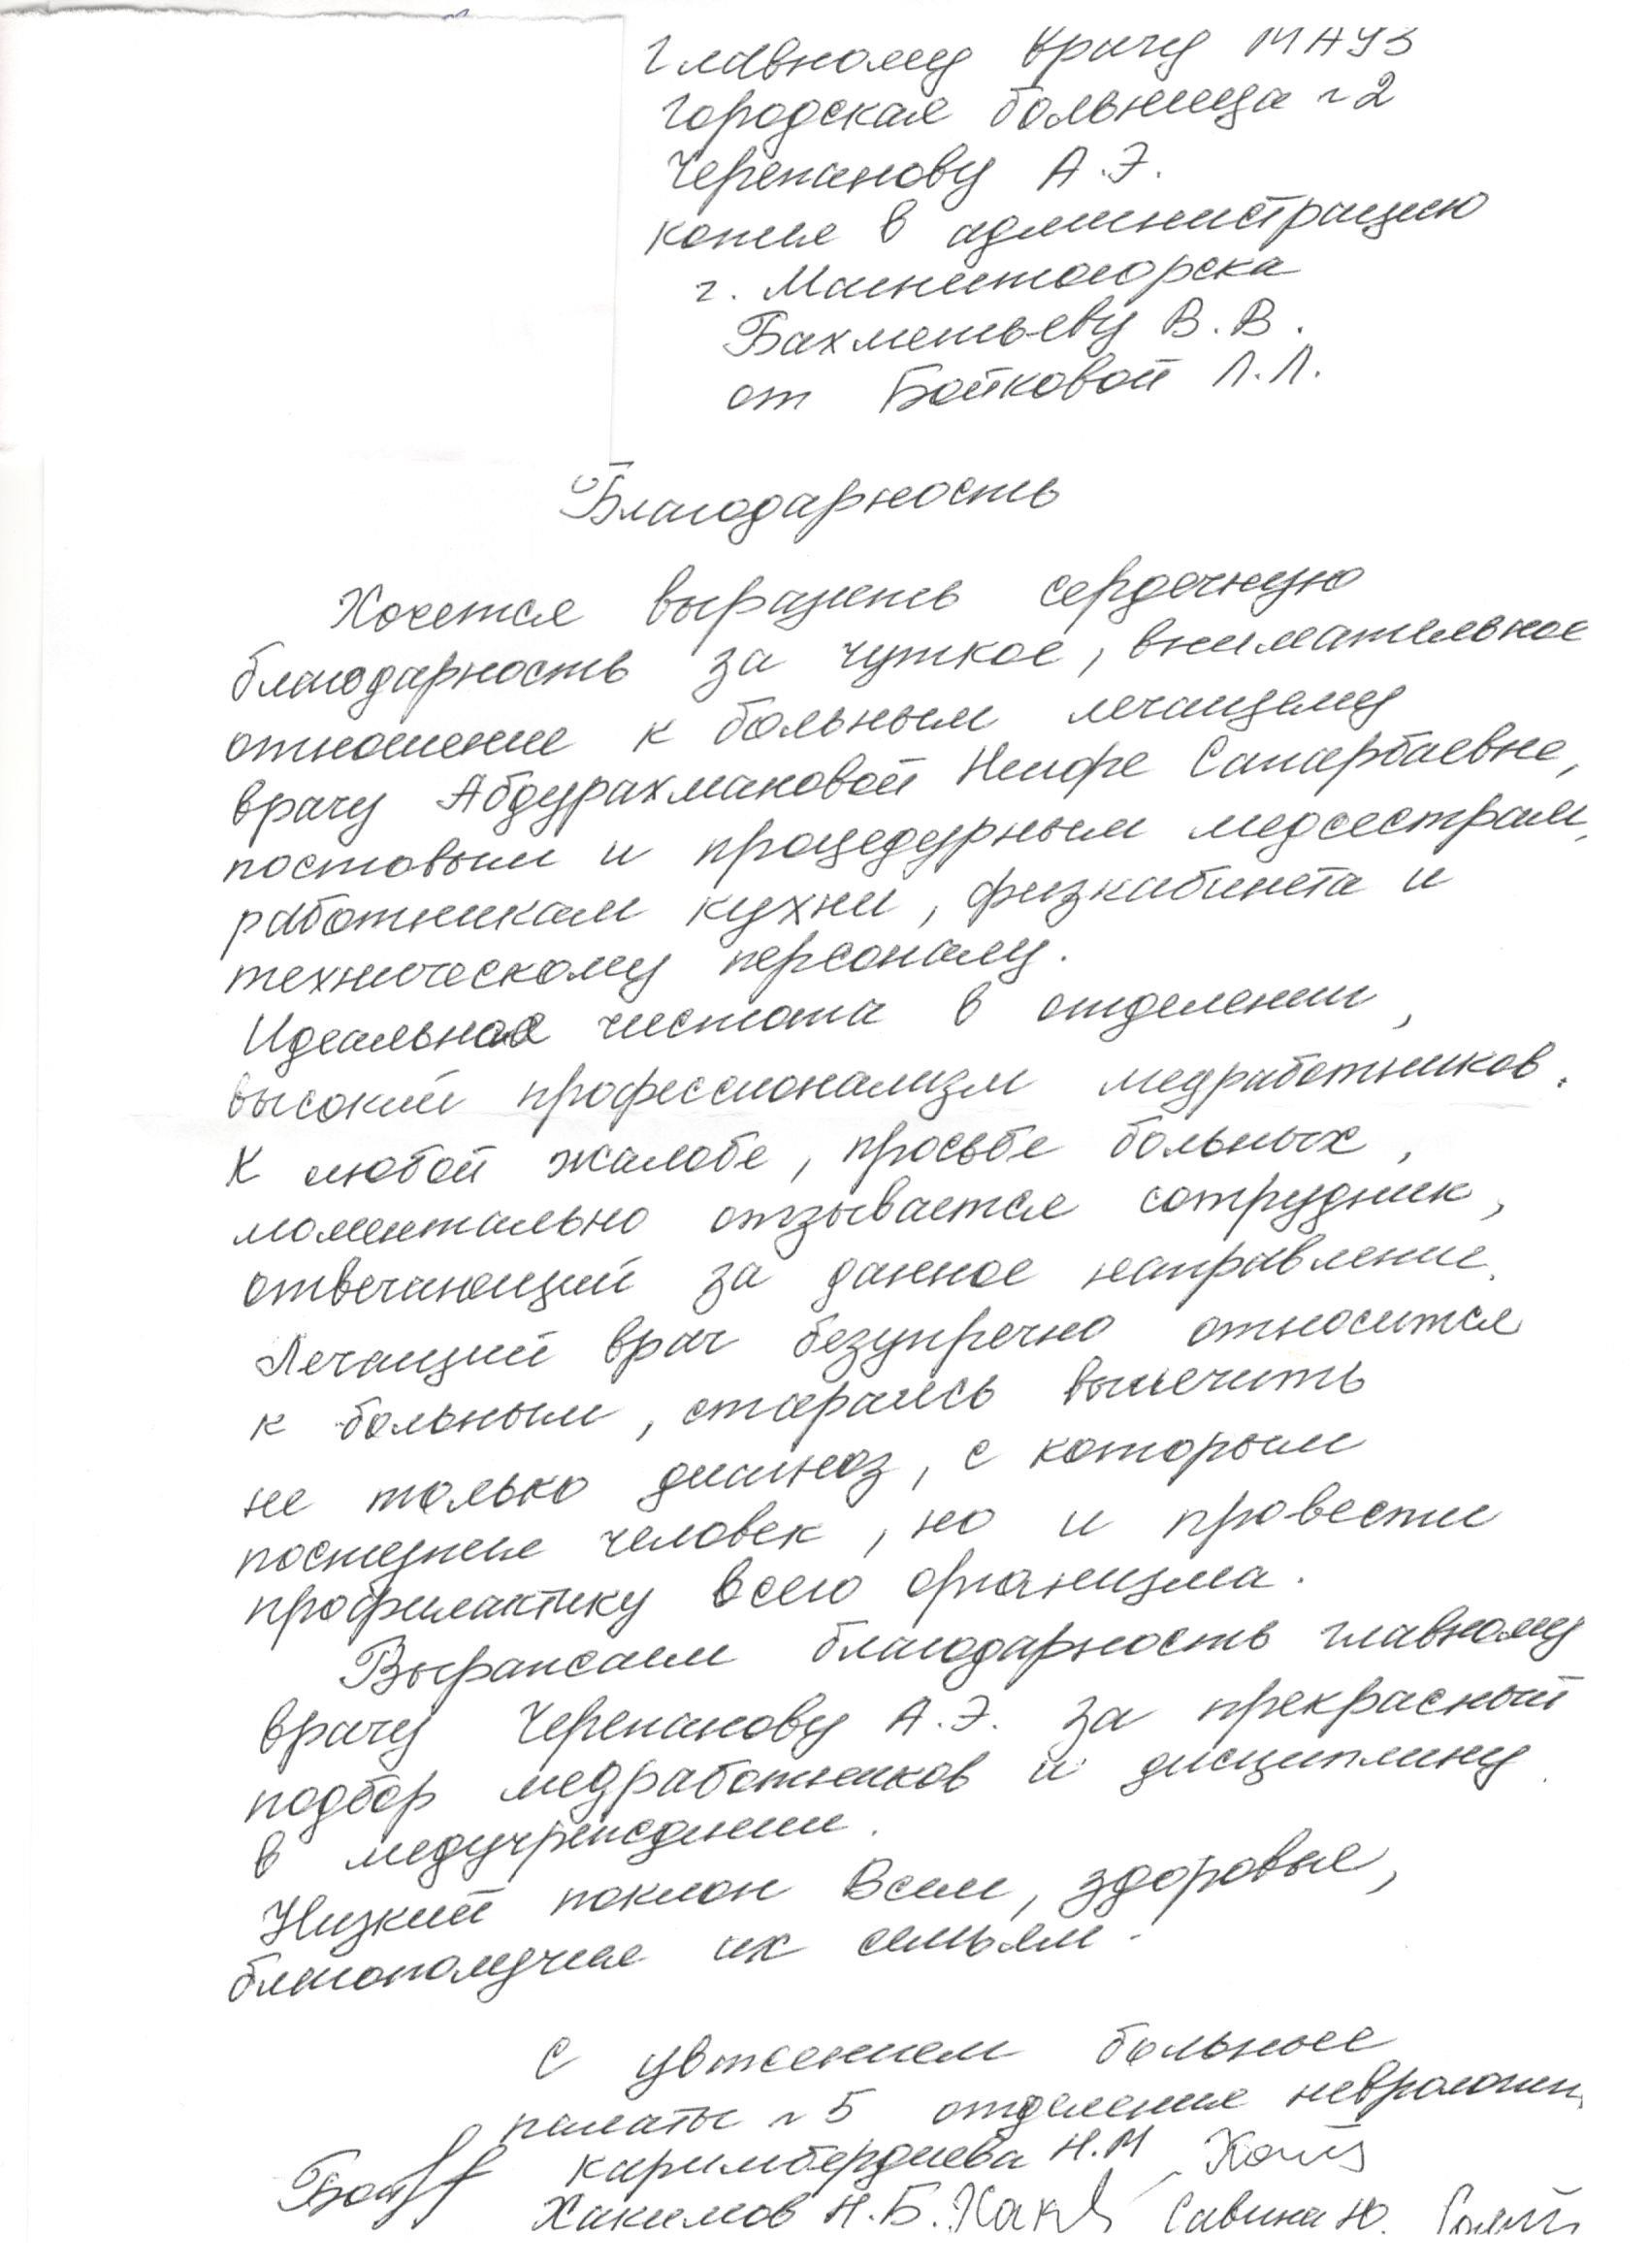 Главному врачу МАУЗ
Городская больница №2
Черепанову А.Э.
копия в администрацию
г. Магнитогорска
Бахметьеву В.В.
от Бойковой Л.Л.
Благодарность
Хочется выразить сердечную
благодарность за чуткое, внимательное
отношение к больным лечащему
врачу Абдурахмановой Нигфе Сапарбаевне,
постовым и процедурным медсестрам,
работникам кухни, физкабинета и
техническому персоналу.
Идеальная чистота в отделении,
высокий профессионализм медработников.
К любой жалобе, просьбе больных,
моментально отзывается сотрудник,
отвечающий за данное направление.
Лечащий врач безупречно относится
к больным, стараясь вылечить
не только диагноз, с которым
поступил человек, но и провести
профилактику всего организма.
Выражаем благодарность главному
врачу Черепанову А.Э. за прекрасный
подбор медработников и дисциплину
в медучреждении.
Низкий поклон Всем, здоровья,
благополучия их семьям!
С уважением больные
палаты №5 отделения неврологии
Каримбердиева Н.М
Хакимов Н.Б. Савина Ю.